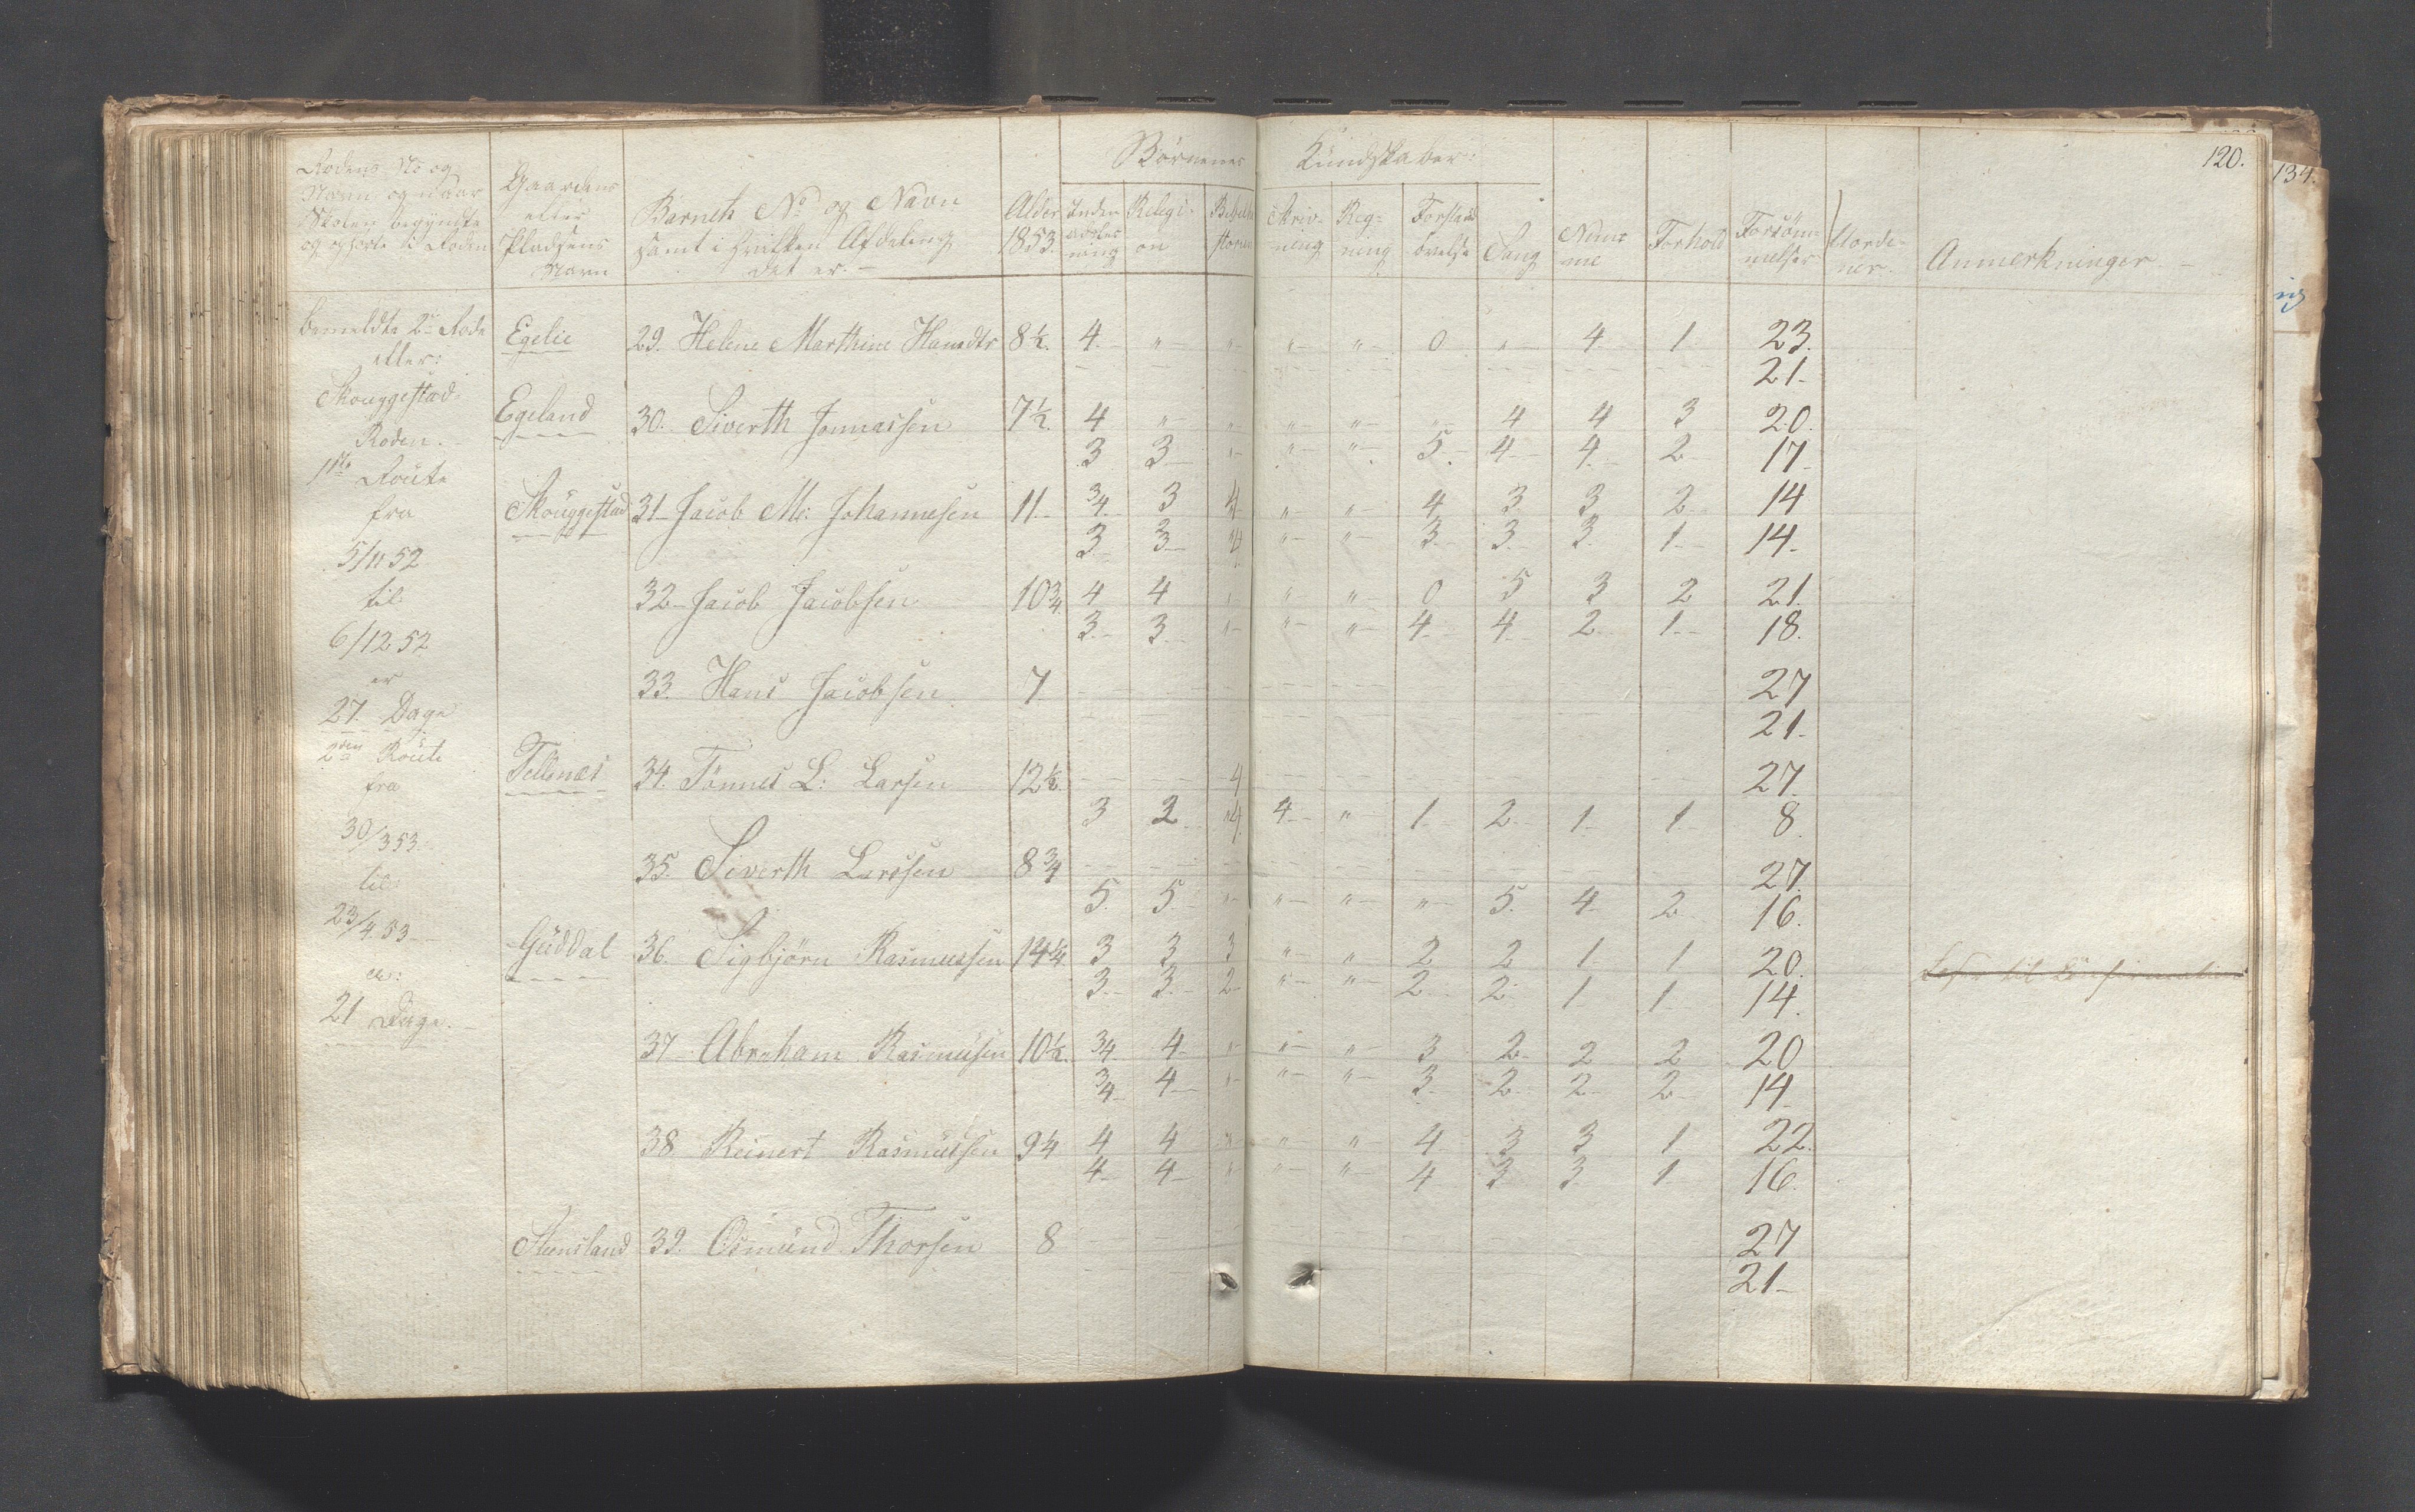 120.
134.
Børnenes Kundskaber:
Rodens No og
Navn og naar
Skolen begyndte
og ophorte i Roden
Gaardens
eller
Pladsens
Navn
Barnets No og Navn
samt i hvilken Afdeling
det er. —
Alder
1853.
Inden
ning
Religi-
on
Skriv-
ning
Reg-
ning
Forstand
övelse
Sang
Nem-
me
Forhold
Forsöm-
melser
Anmerkninger —
bemeldte 2den Rode
eller:
Skouggestad
Roden.
1ste Route
fra
5/11 52
til
6/12 52
er
27. Dage
2den Route
fra
30/3 53
til
23/4 53
er:
21 Dage.
Egelie 29. Helene Marthine Hansdtr 8½. 4 — " " " " 0 " 4 1 23.
21
Egeland 30. Siverth Jonnassen 7½. 4 " " " " " 4 4 3 20.
3 3 " " " 5 4 4 2 17
Skouggestad 31 Jacob M: Johannesen 11 3/4 3 4 " " 4 3 3 2 14
3 3 4 " " 3 3 3 1 14
32 Jacob Jacobsen 10¾ 4 4 " " " 0 5 3 2 21.
3 3 " " " 4 4 2 1 18.
33. Hans Jacobsen 7 27
21
Tellenæs 34. Tønnes L: Larsen 12½ 4 27
3 2 4 4 " 1 2 1 1 8
35. Siverth Larssen 8¾ 27.
5 5 " " " " 5 4 2 16.
Guddal 36. Sigbjörn Rasmussen 14¼ 3 3 3 " " 2 2 1 1 20.
3 3 2 " " 2 2 1 1 14.
37 Abraham Rasmussen 10½. 3/4 4 " " " 3 2 2 2 20
3/4 4 " " " 3 2 2 2 14
38 Reinert Rasmussen 9¼ 4 4 " " " 4 3 3 1 22.
4 4 " " " 4 3 3 1 16.
Steensland 39. Osmund Thorsen 8 27
21